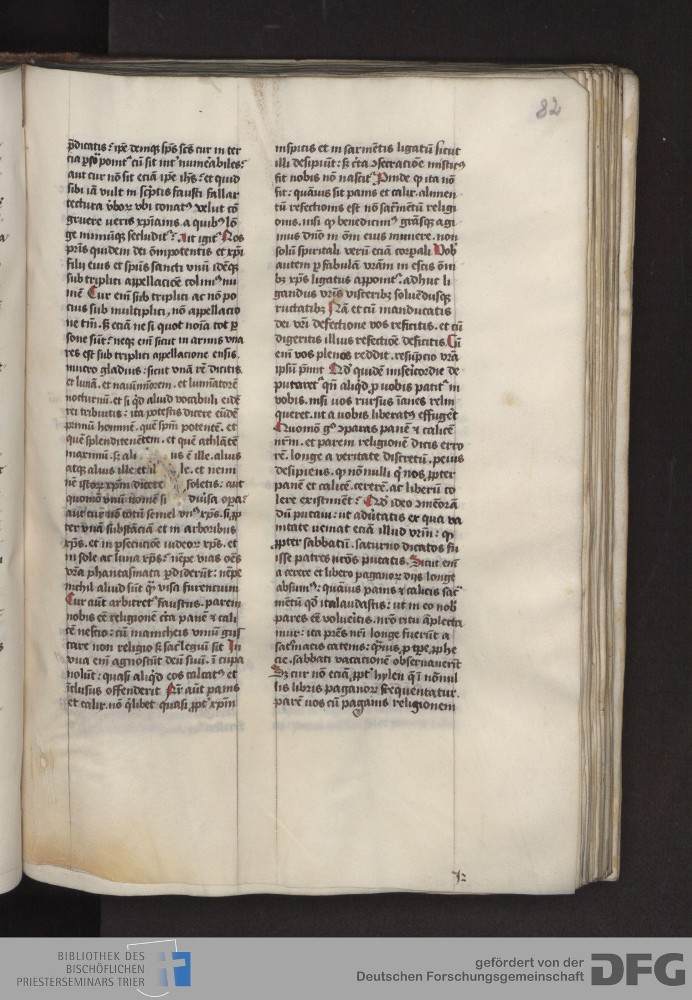 82
p̄dicatis? ip̄e demq̄ sp̄s sc̄s cur in ter
cia p̄so ponit᷑ cū sit int᷑ num̄abiles?
aut cur nō sit eciā ip̄e ih̄s? et quid
sibi iā vult in sc̄ptis fausti fallax
tectura v̄boꝝ vbi conat᷑ velut cō
gruere ueris xp̄ianis a quibꝰ lō
ge nimiūq̄ secludit᷑? Ait igit᷑ Nos
pr̄is quidem dei om̄ipotentis et xp̄i
filij eius et sp̄us sancti vnū idēq̄
sub triplici appellacōe colimꝰ nu
mē Cur em̄ sub triplici ac nō po
cius sub multiplici, nō appellacio
ne tm̄. sꝫ eciā re si quot noīa tot p̄
sone sūt? neq̄ em̄ sicut in armis vna
res est sub triplici appellacione ensis.
mucro gladius. sicut vnā rē dicitis
et lunā. et nauim̄iorem. et lumīatorē
nocturnū. et si q̄d aliud vocabuli eidē
rei tributis: ita potestis dicere eūdē
primū hominē. quē sp̄m potentē. et
quē splenditenētem. et quē athlātē
maximū. sꝫ ali us ē ille. alius
atq̄ alius ille. et il le. et nemi
nē istoꝝ xp̄m dicere soletis: aut
quomō vnū nomē si diūsa opa?
ter vnā substāciā et in arboribus
xp̄s. et in p̄secucōe iudeoꝝ xp̄s. et
in sole ac luna xp̄s? nēpe vias oēs
vr̄a phantasmata p̄diderūt: nēpe
nichil aliud sūt q̄ visa furencium
Cur aūt arbitret᷑ faustus. parem
nobis eē religionē circa panē ⁊ cali
cē nescio: cū manicheis vinū gus
tare non religio sꝫ sac̄legiū sit In
vua em̄ agnoscūt deū suū. ī cupa
nolūt: quasi aliq̄d eos calcatꝰ et
īclusus offenderit Nr̄ aūt panis
et calix. nō q̄libet quasi ꝓpt᷑ xp̄m
in spicis et in sarmētis ligatū sicut
illi desipiūt: sꝫ c̄ta ꝯsecracōne misticꝰ
fit nobis nō nascit᷑ Proinde q̄ ita nō
fit: quāuis sit panis et calix. alimen
tū refectionis est nō sac̄mētū religi
onis. nisi q̄ benedicimꝰ grāsq̄ agi
mus dn̄o in om̄ eius munere. non
solū spiritali verū eciā corpali Vob̄
autem p̄ fabulā vr̄am in escis om̄i
bꝫ xp̄s ligatus apponit᷑. adhuc li
gandus vr̄is visceribꝫ soluēdusq̄
ructatibꝫ Nā et cū manducatis
dei vr̄i defectione vos reficitis. et cū
digeritis illius refectiōe deficitis. Cū
em̄ vos plenos reddit. resūpcio vr̄a
ipsū p̄mit Qd̄ quidē misericordie de
putaret᷑ qn̄ aliq̄d p̄ uobis patit᷑ in
vobis. nisi vos rursus īanes relin
queret. ut a uobis liberatꝰ effuget
Quomō gͦ ꝯparas panē ⁊ calicē
nr̄m. et parem religionē dicis erro
rē. longe a veritate discretū. peius
desipiens. q̄ nōnulli q̄ nos ꝓpter
panē et calicē. cererē. ac liberū co
lere existimēt? Qd̄ ideo ꝯmēorā
dū putaui: ut aduertatis ex qua va
nitate ueniat eciā illud vr̄m: q̄
ꝓpter sabbatū. saturno dicatos fu
isse patres nr̄os putatis. Sicut em̄
a cerere et libero paganoꝝ dijs longe
absumꝰ: quāuis panis ⁊ calicis sac̄
mētū qd̄ ita laudastis: ut in eo nob̄
pares eē volueritis. nr̄o ritu āplecta
mur: ita pr̄es nr̄i longe fuerūt a
saturniacis catenis: quāuis p̄ tp̄e. ꝓphe
cie. sabbati vacationē obseruauerūt
Sꝫ cur nō eciā. ꝓpt᷑ hylen q̄ ī nōnul
lis libris paganoꝝ frequentatur.
parē uos cū paganis religionem
BIBLIOTHEK DES
BISCHÖFLICHEN
PRIESTERSEMINARS TRIER
gefördert von der
Deutschen Forschungsgemeinschaft
DFG